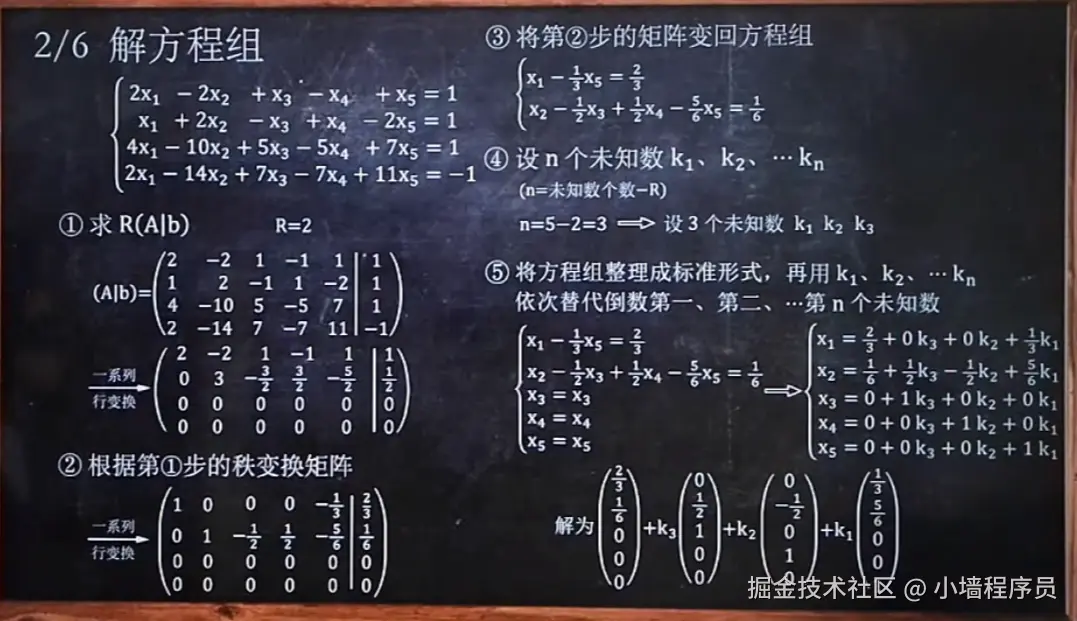 2/6 解方程组
2x₁ − 2x₂ + x₃ − x₄ + x₅ = 1
x₁ + 2x₂ − x₃ + x₄ − 2x₅ = 1
4x₁ − 10x₂ + 5x₃ − 5x₄ + 7x₅ = 1
2x₁ − 14x₂ + 7x₃ − 7x₄ + 11x₅ = −1
① 求 R(A|b) R=2
(A|b)=
2 −2 1 −1 1 | 1
1 2 −1 1 −2 | 1
4 −10 5 −5 7 | 1
2 −14 7 −7 11 | −1
一系列
行变换
2 −2 1 −1 1 | 1
0 3 −3/2 3/2 −5/2 | 1/2
0 0 0 0 0 | 0
0 0 0 0 0 | 0
② 根据第①步的秩变换矩阵
一系列
行变换
1 0 0 0 −1/3 | 2/3
0 1 −1/2 1/2 −5/6 | 1/6
0 0 0 0 0 | 0
0 0 0 0 0 | 0
③ 将第②步的矩阵变回方程组
x₁ − 1/3x₅ = 2/3
x₂ − 1/2x₃ + 1/2x₄ − 5/6x₅ = 1/6
④ 设 n 个未知数 k₁、k₂、⋯ kₙ
(n=未知数个数−R)
n=5−2=3 ⟹ 设 3 个未知数 k₁ k₂ k₃
⑤ 将方程组整理成标准形式，再用 k₁、k₂、⋯ kₙ
依次替代倒数第一、第二、⋯第 n 个未知数
x₁ − 1/3x₅ = 2/3
x₂ − 1/2x₃ + 1/2x₄ − 5/6x₅ = 1/6
x₃ = x₃
x₄ = x₄
x₅ = x₅
⟹
x₁ = 2/3 + 0 k₃ + 0 k₂ + 1/3 k₁
x₂ = 1/6 + 1/2 k₃ − 1/2 k₂ + 5/6 k₁
x₃ = 0 + 1 k₃ + 0 k₂ + 0 k₁
x₄ = 0 + 0 k₃ + 1 k₂ + 0 k₁
x₅ = 0 + 0 k₃ + 0 k₂ + 1 k₁
解为 (2/3 1/6 0 0 0) +k₃ (0 1/2 1 0 0) +k₂ (0 −1/2 0 1 0) +k₁ (1/3 5/6 0 0
掘金技术社区 @ 小墙程序员